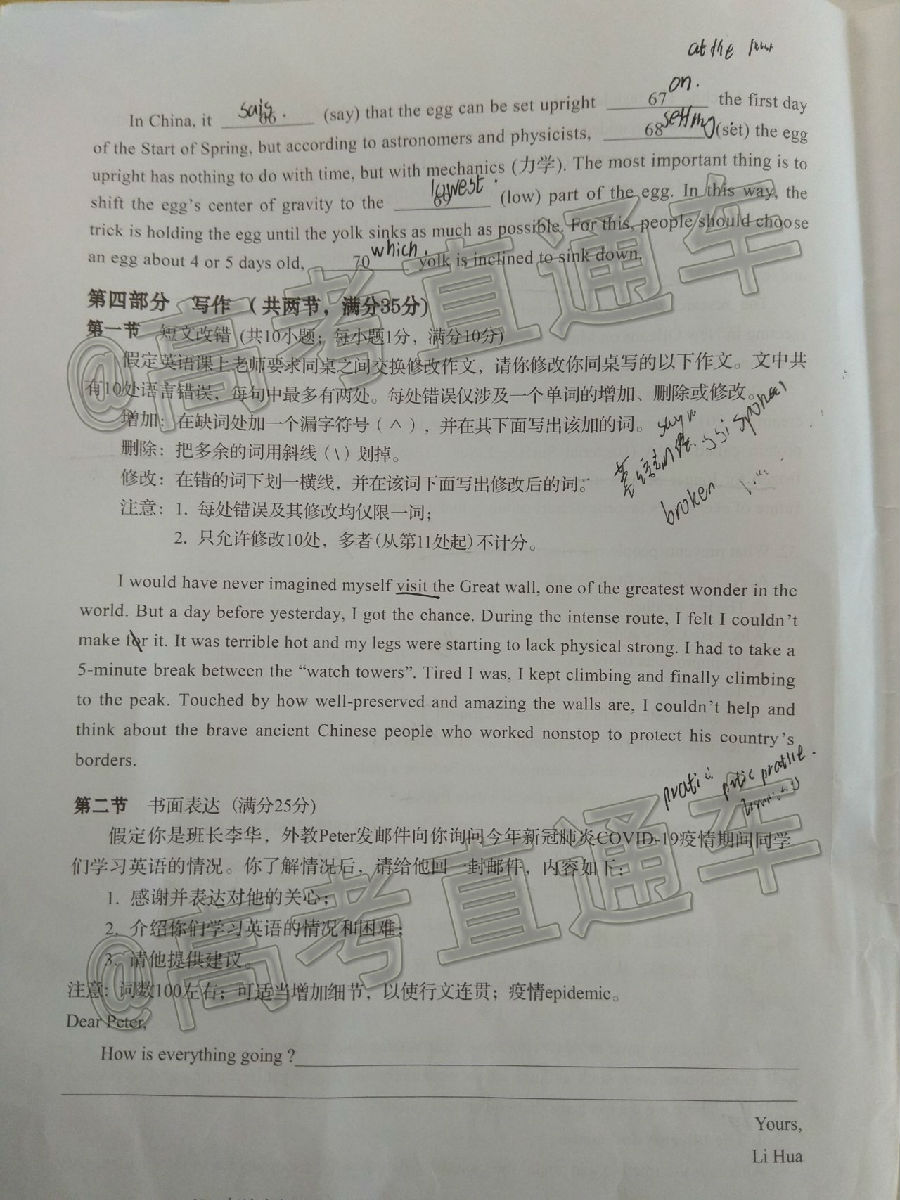 at the
In China, it said. 66 (say) that the egg can be set upright on. 67 the first day
of the Start of Spring, but according to astronomers and physicists, 68 setting. (set) the egg
upright has nothing to do with time, but with mechanics (力学). The most important thing is to
shift the egg's center of gravity to the lowest. 69 (low) part of the egg. In this way, the
trick is holding the egg until the yolk sinks as much as possible. For this, people should choose
an egg about 4 or 5 days old, 70 which. yolk is inclined to sink down.
第四部分 写作 (共两节,满分35分)
第一节 短文改错 (共10小题;每小题1分,满分10分)
假定英语课上老师要求同桌之间交换修改作文,请你修改你同桌写的以下作文。文中共
有10处语言错误,每句中最多有两处。每处错误仅涉及一个单词的增加、删除或修改。
增加:在缺词处加一个漏字符号(∧),并在其下面写出该加的词。
删除:把多余的词用斜线(\)划掉。
修改:在错的词下划一横线,并在该词下面写出修改后的词。
broken
注意:1. 每处错误及其修改均仅限一词;
2. 只允许修改10处,多者(从第11处起)不计分。
I would have never imagined myself visit the Great wall, one of the greatest wonder in the
world. But a day before yesterday, I got the chance. During the intense route, I felt I couldn't
make for it. It was terrible hot and my legs were starting to lack physical strong. I had to take a
5-minute break between the "watch towers". Tired I was, I kept climbing and finally climbing
to the peak. Touched by how well-preserved and amazing the walls are, I couldn't help and
think about the brave ancient Chinese people who worked nonstop to protect his country's
borders.
第二节 书面表达(满分25分)
假定你是班长李华,外教Peter发邮件向你询问今年新冠肺炎COVID-19疫情期间同学
们学习英语的情况。你了解情况后,请给他回一封邮件,内容如下:
1. 感谢并表达对他的关心;
2. 介绍你们学习英语的情况和困难;
3. 请他提供建议。
注意:词数100左右;可适当增加细节,以使行文连贯;疫情epidemic。
Dear Peter,
How is everything going ?
Yours,
Li Hua
@高考直通车
@高考直通车